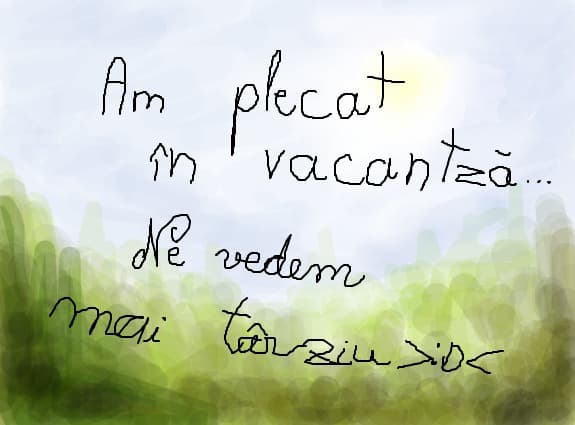 Am plecat
în vacantză...
Ne vedem
mai târziu >:D<